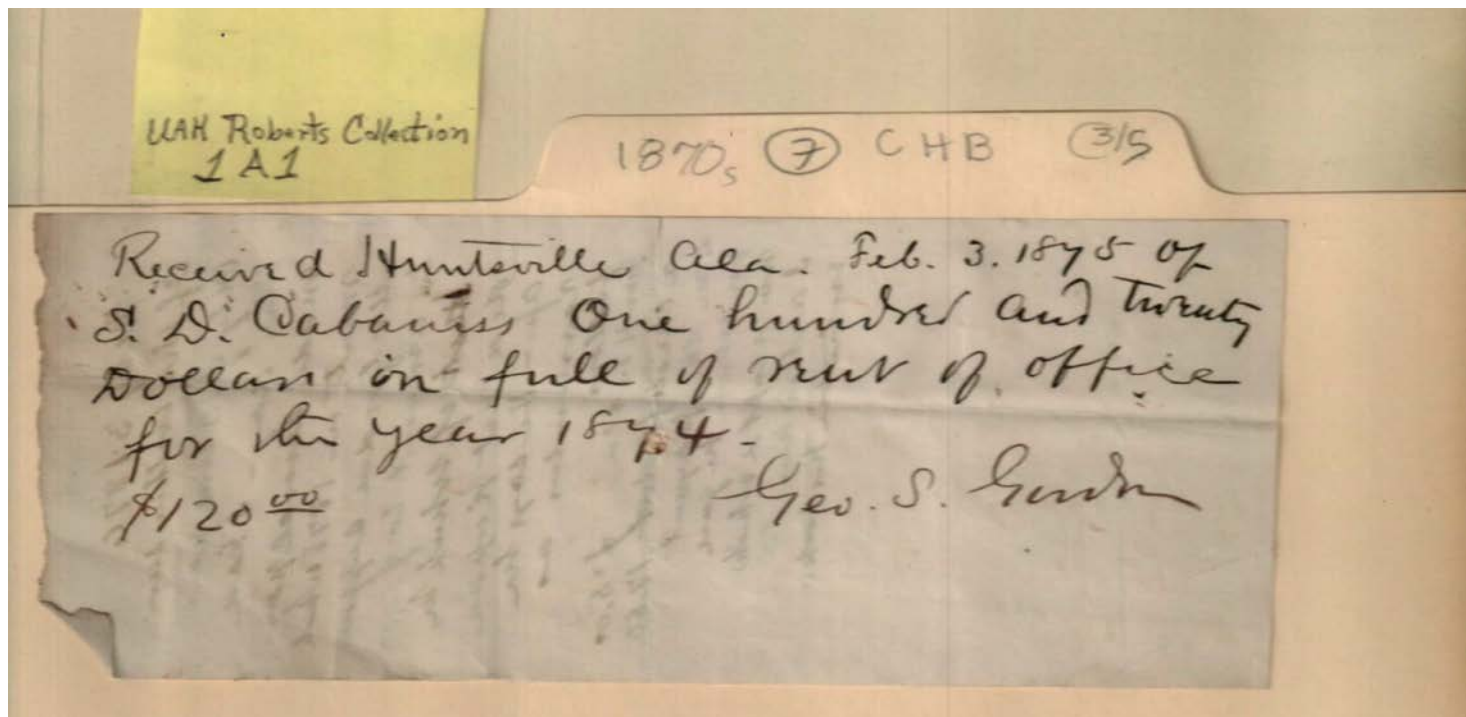 UAH Roberts Collection
1A1
1870s 7 CHB 3/5
Received Huntsville Ala. Feb. 3. 1875 of
S. D. Cabaniss One hundred and twenty
Dollars in full of rent of office
for the year 1874-
$120 00
Geo. S. Gordon